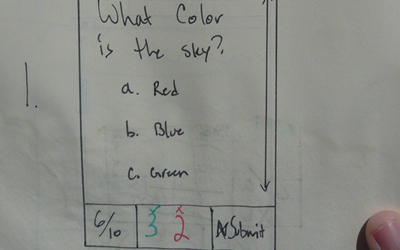 What Color
is the sky?
1.
a. Red
b. Blue
c. Green
6/10
3 2
Submit